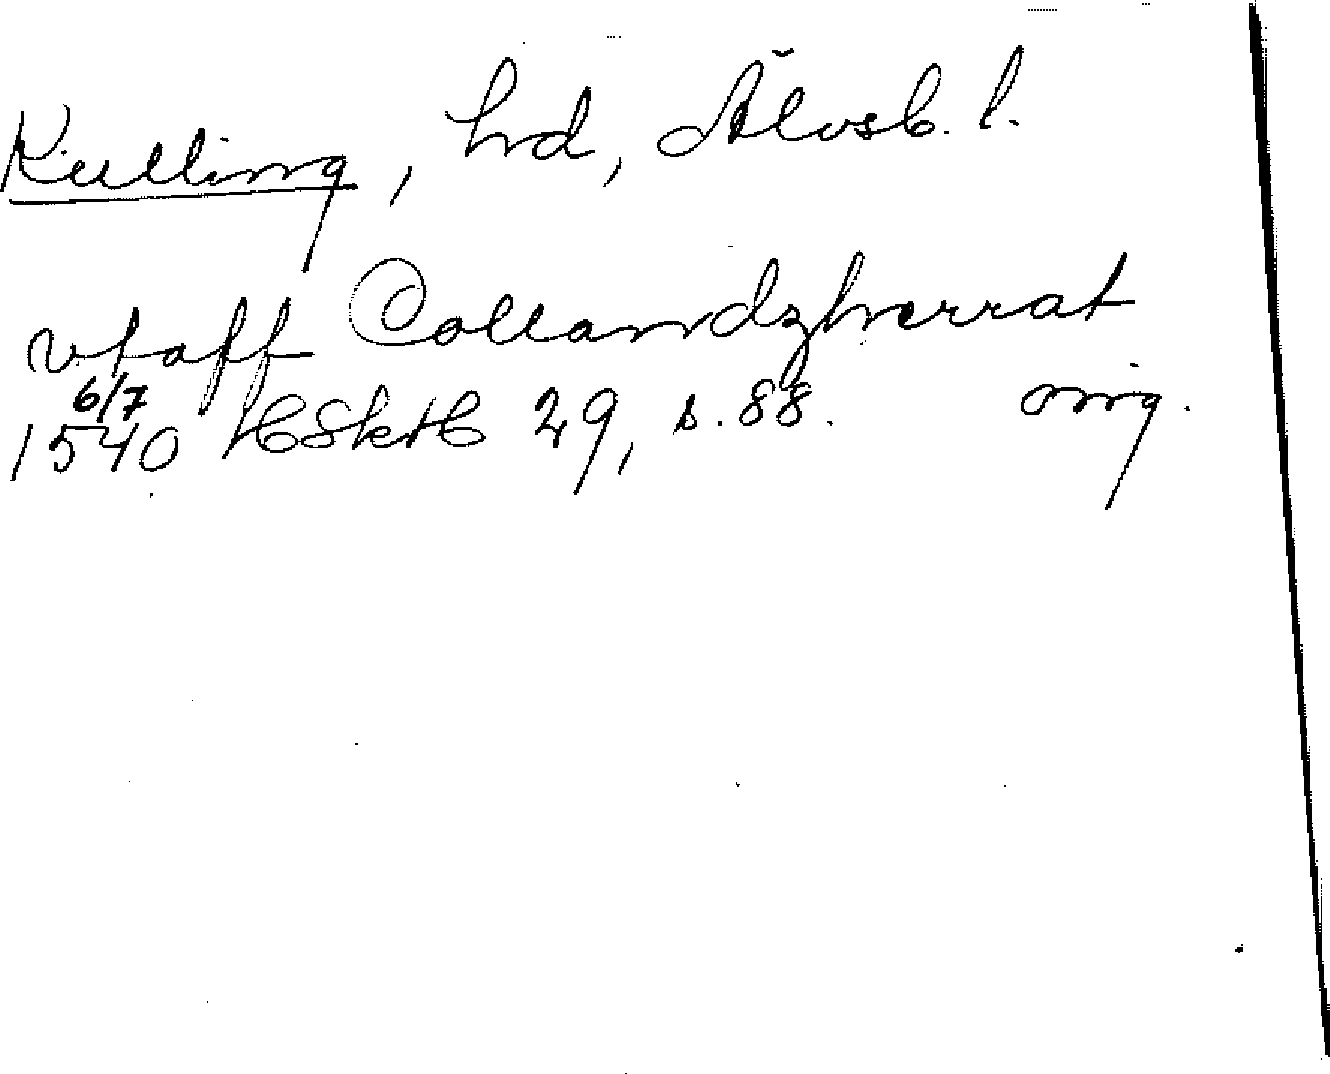 Kulling, hd, Älvsb. l.
vtaff Collandzherrat
6/7
1540 HSkH 29, s. 88. orig.